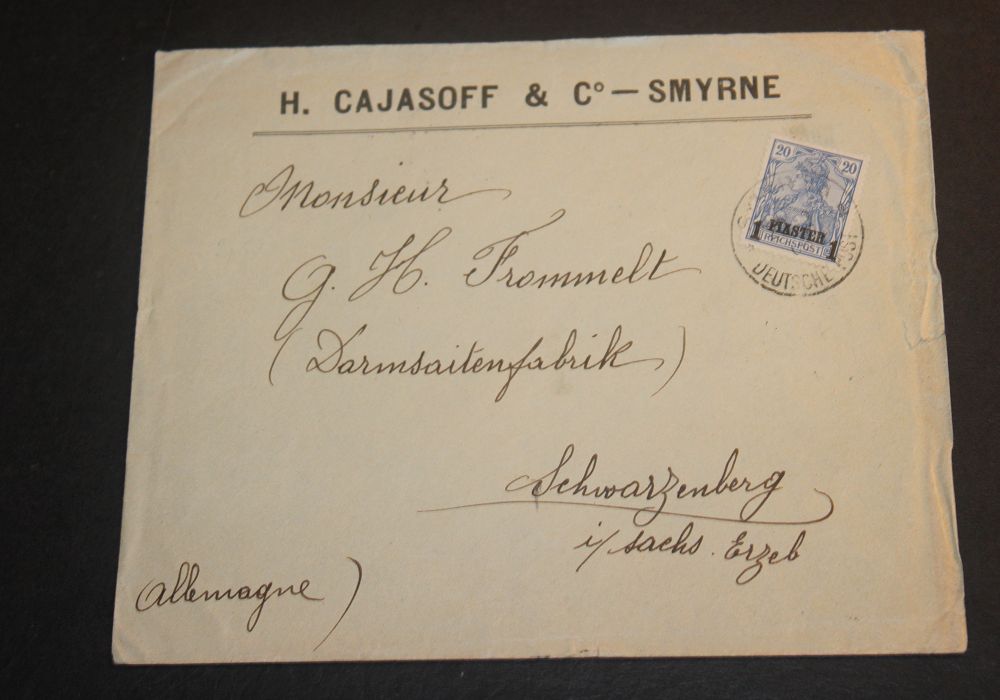 H. CAJASOFF & Cº — SMYRNE
20 20
1 PIASTER 1
REICHSPOST
DEUTSCHE POST
Monsieur
G. H. Frommelt
(Darmsaitenfabrik)
Schwarzenberg
i/ sachs. Erzeb
(Allemagne)